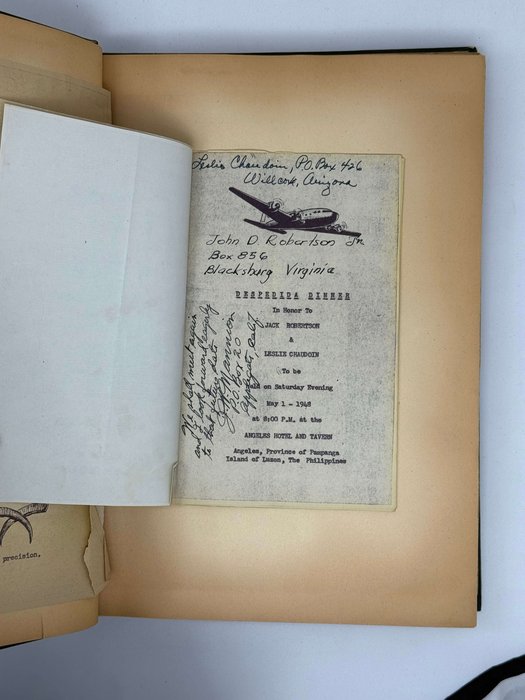 Leslie Chaudoin, P.O. Box 426
Willcox, Arizona
John D Robertson Jr.
Box 856
Blacksburg Virginia
DESPEDIDA DINNER
In Honor To
JACK ROBERTSON
&
LESLIE CHAUDOIN
To be
on Saturday Evening
May 1 - 1948
at 8:00 P.M. at the
ANGELES HOTEL AND TAVERN
Angeles, Province of Pampanga
Island of Luzon, The Philippines
We shall meet again
and I look forward eagerly
to that future date
Mannion
P.O. Box 20
Applegate, Calif.
precision.